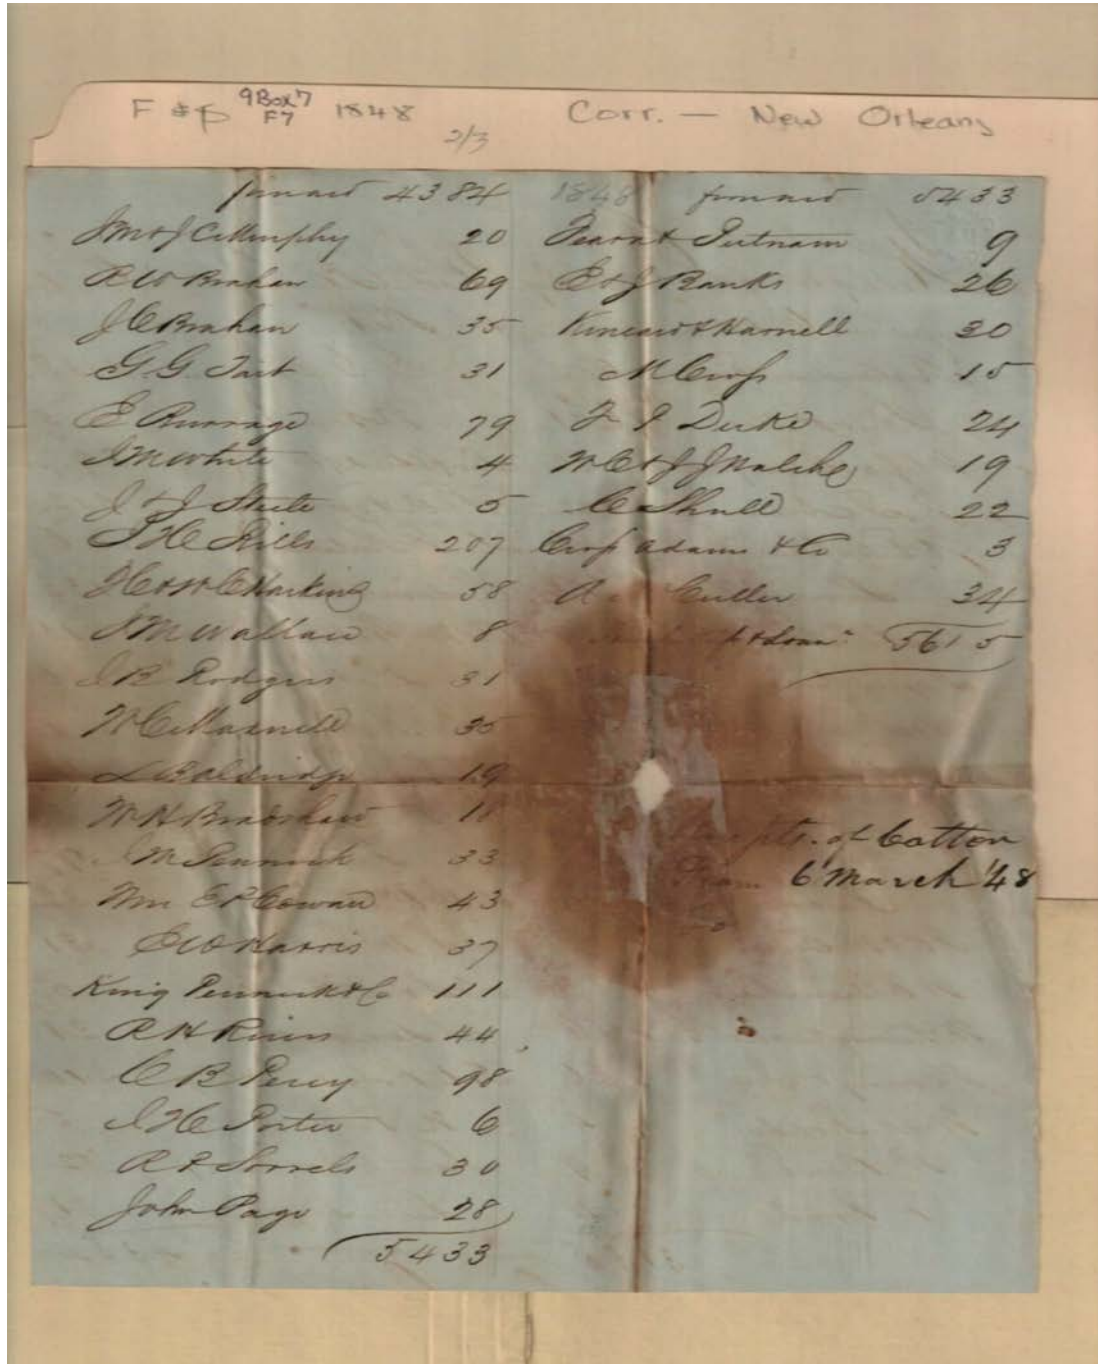 F & P 9Box7 F7 1848 Corr. — New Orleans
2/3
forward 4384
J M & J C Murphy 20
R W Brahan 69
J C Brahan 35
G. G. Tait 31
E Burrage 79
J M White 4
J & J Steele 5
207
58
J M Wallace 8
J B Rodgers 31
W C Maxwell 35
L Baldridge 19
W H Bradshaw 11
J M Pennick 33
Wm E & Cowan 43
C W Harris 37
King Pennick & Co 111
R H Rivers 44
C B Percy 98
J H Porter 6
R & Sorrels 30
John Page 28
5433
1848 forward 5433
Fearn & Putnam 9
E & J Banks 26
Kincaid & Harwell 30
M Cross 15
Duke 24
19
C Shull 22
Cross Adams & Co 3
Cutler 34
5615
of Cotton
From 6 March '48